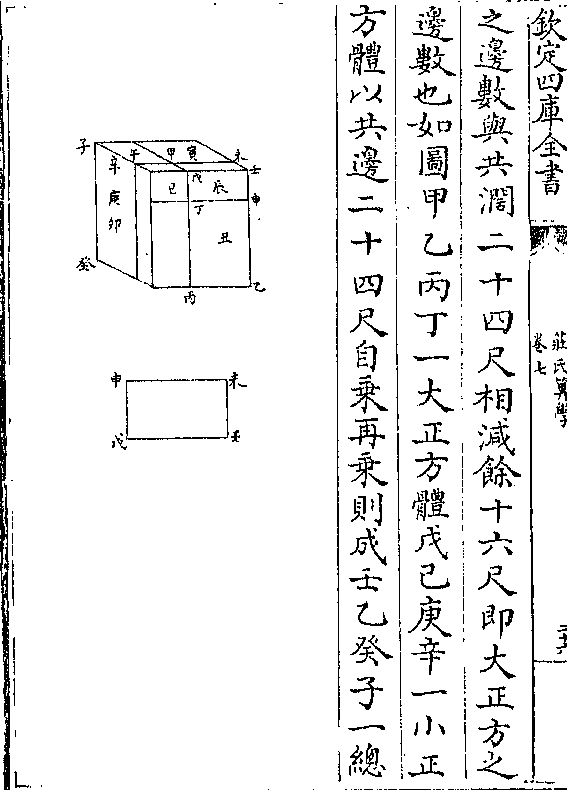 欽定四庫全書
莊氏算學
卷七
二十六
之邊數與共濶二十四尺相減餘十六尺即大正方之
邊數也如圖甲乙丙丁一大正方體戊己庚辛一小正
方體以共邊二十四尺自乗再乗則成壬乙癸子一總
子
午
甲
寅
未
壬
辛
庚
卯
己
戊
辰
丁
申
丑
癸
丙
乙
申
未
戊
壬